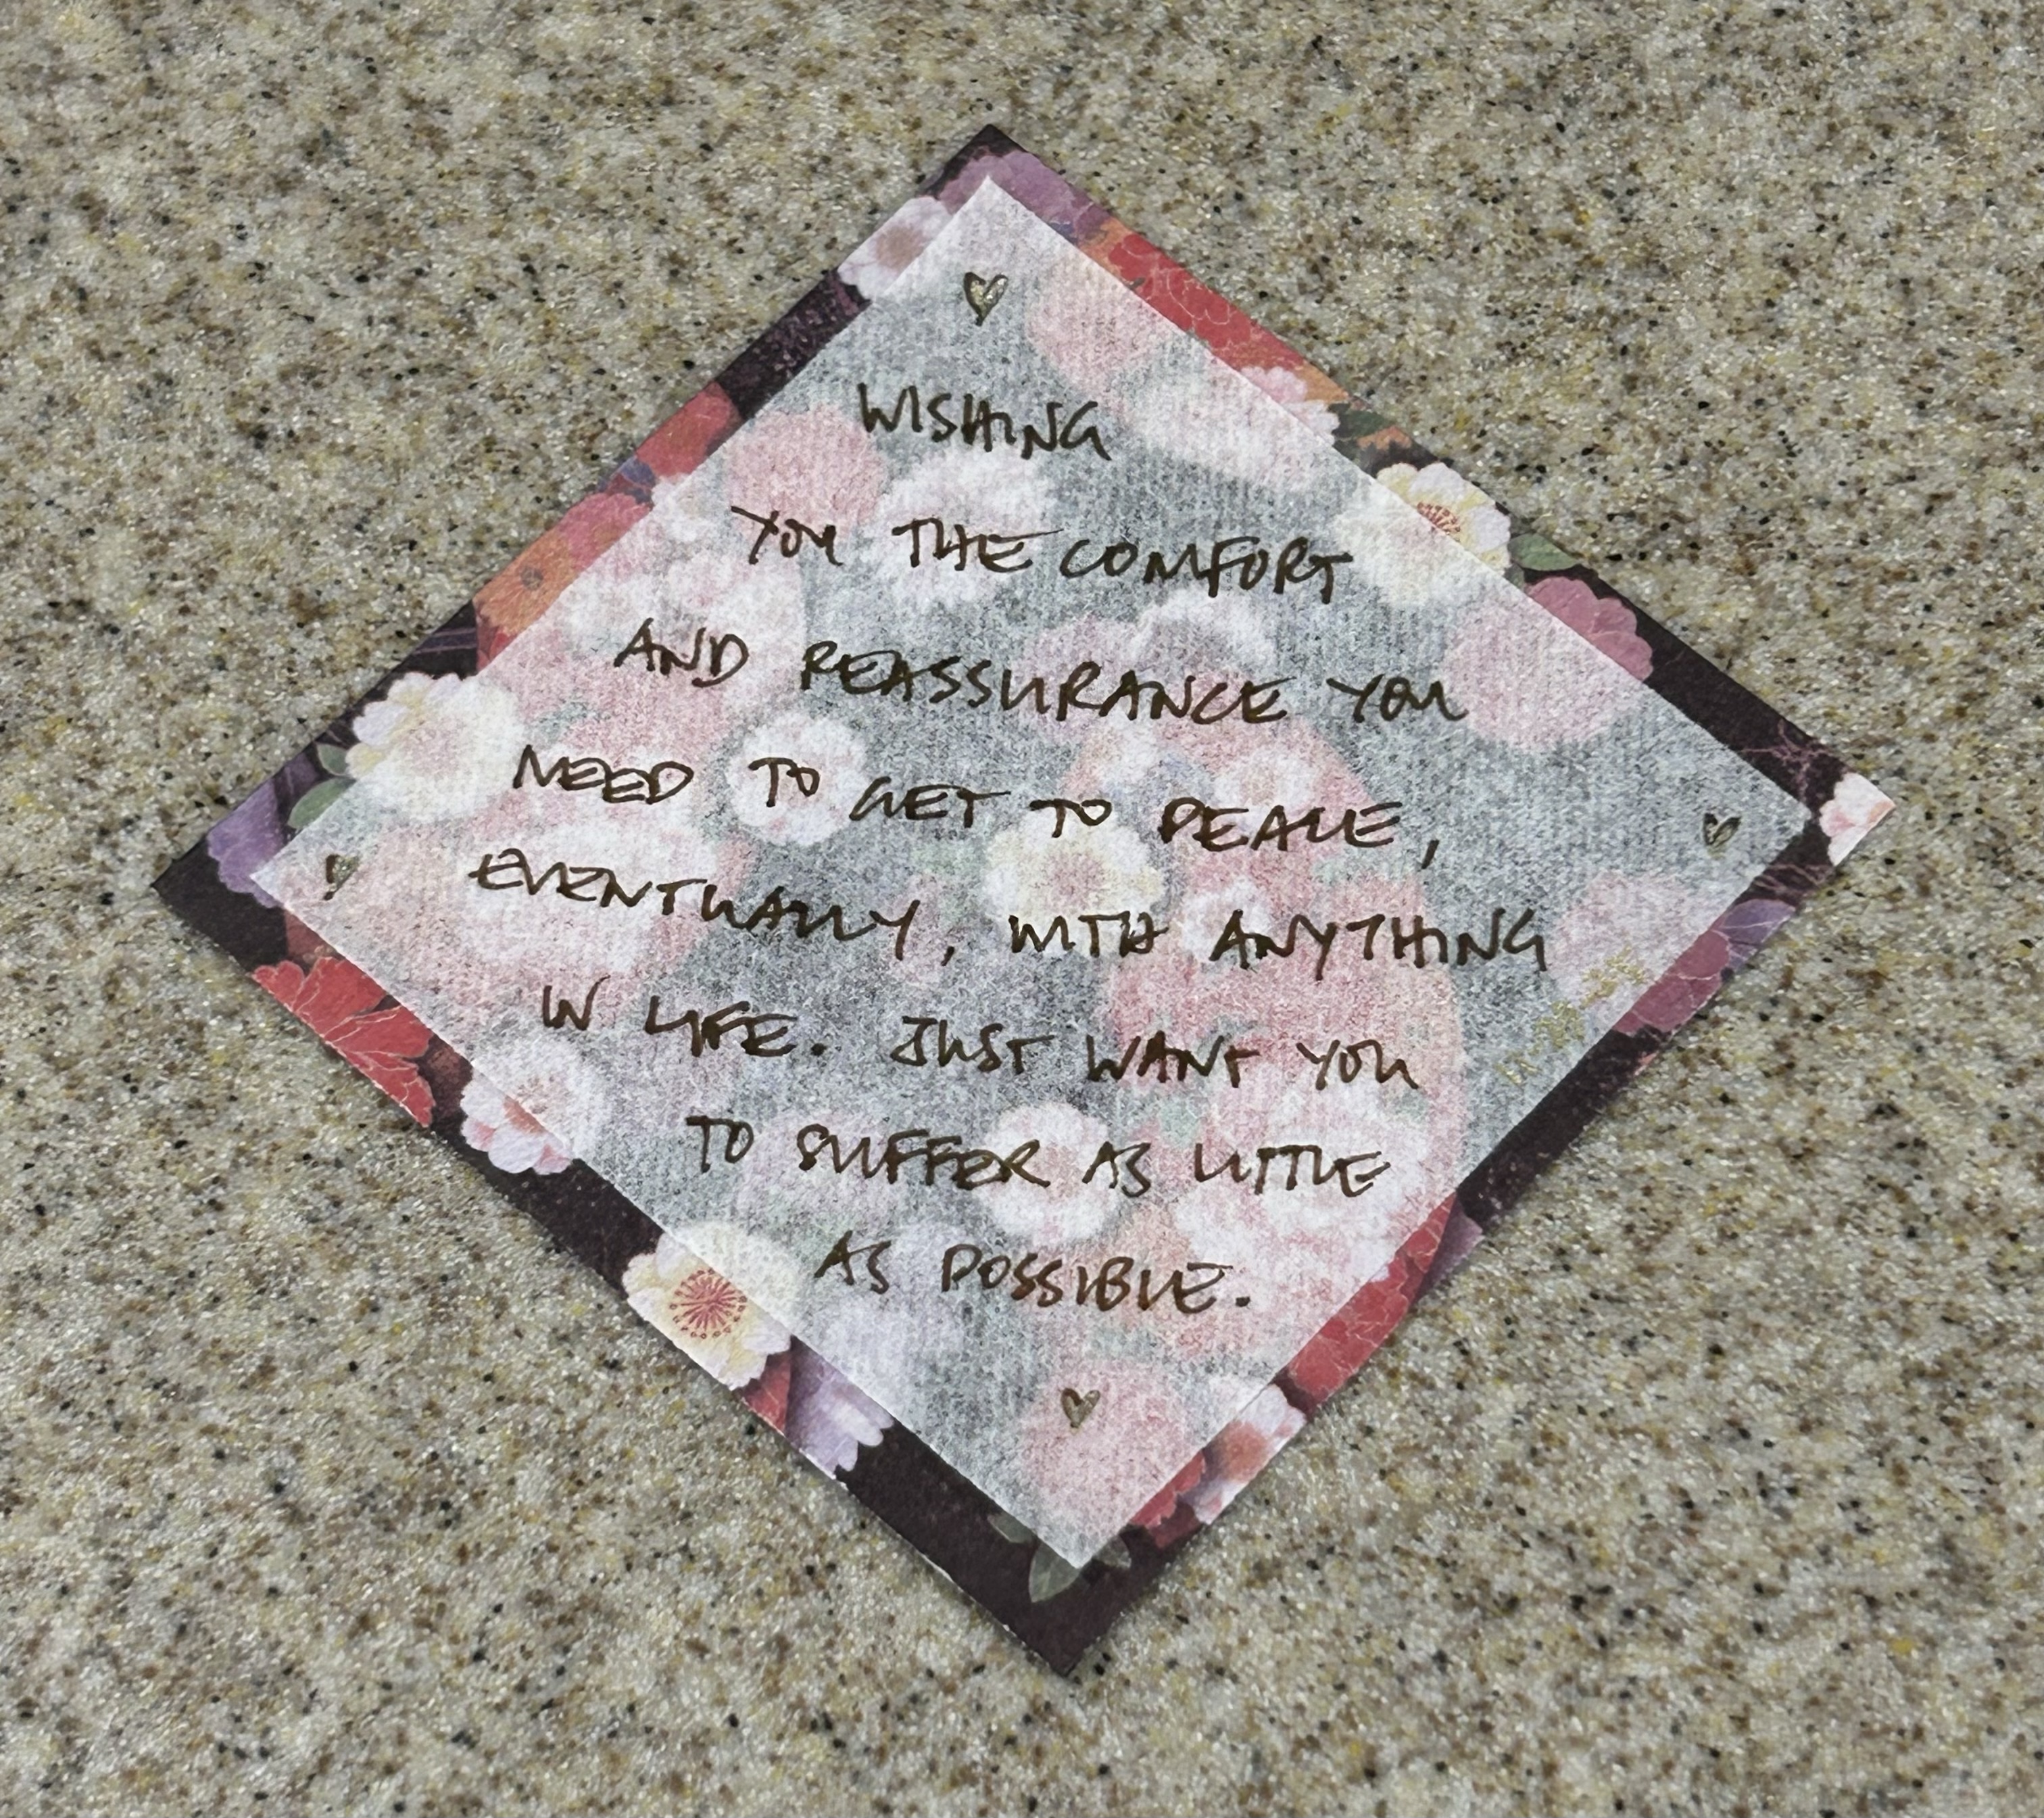 WISHING
YOU THE COMFORT
AND REASSURANCE YOU
NEED TO GET TO PEACE,
EVENTUALLY, WITH ANYTHING
IN LIFE. JUST WANT YOU
TO SUFFER AS LITTLE
AS POSSIBLE.